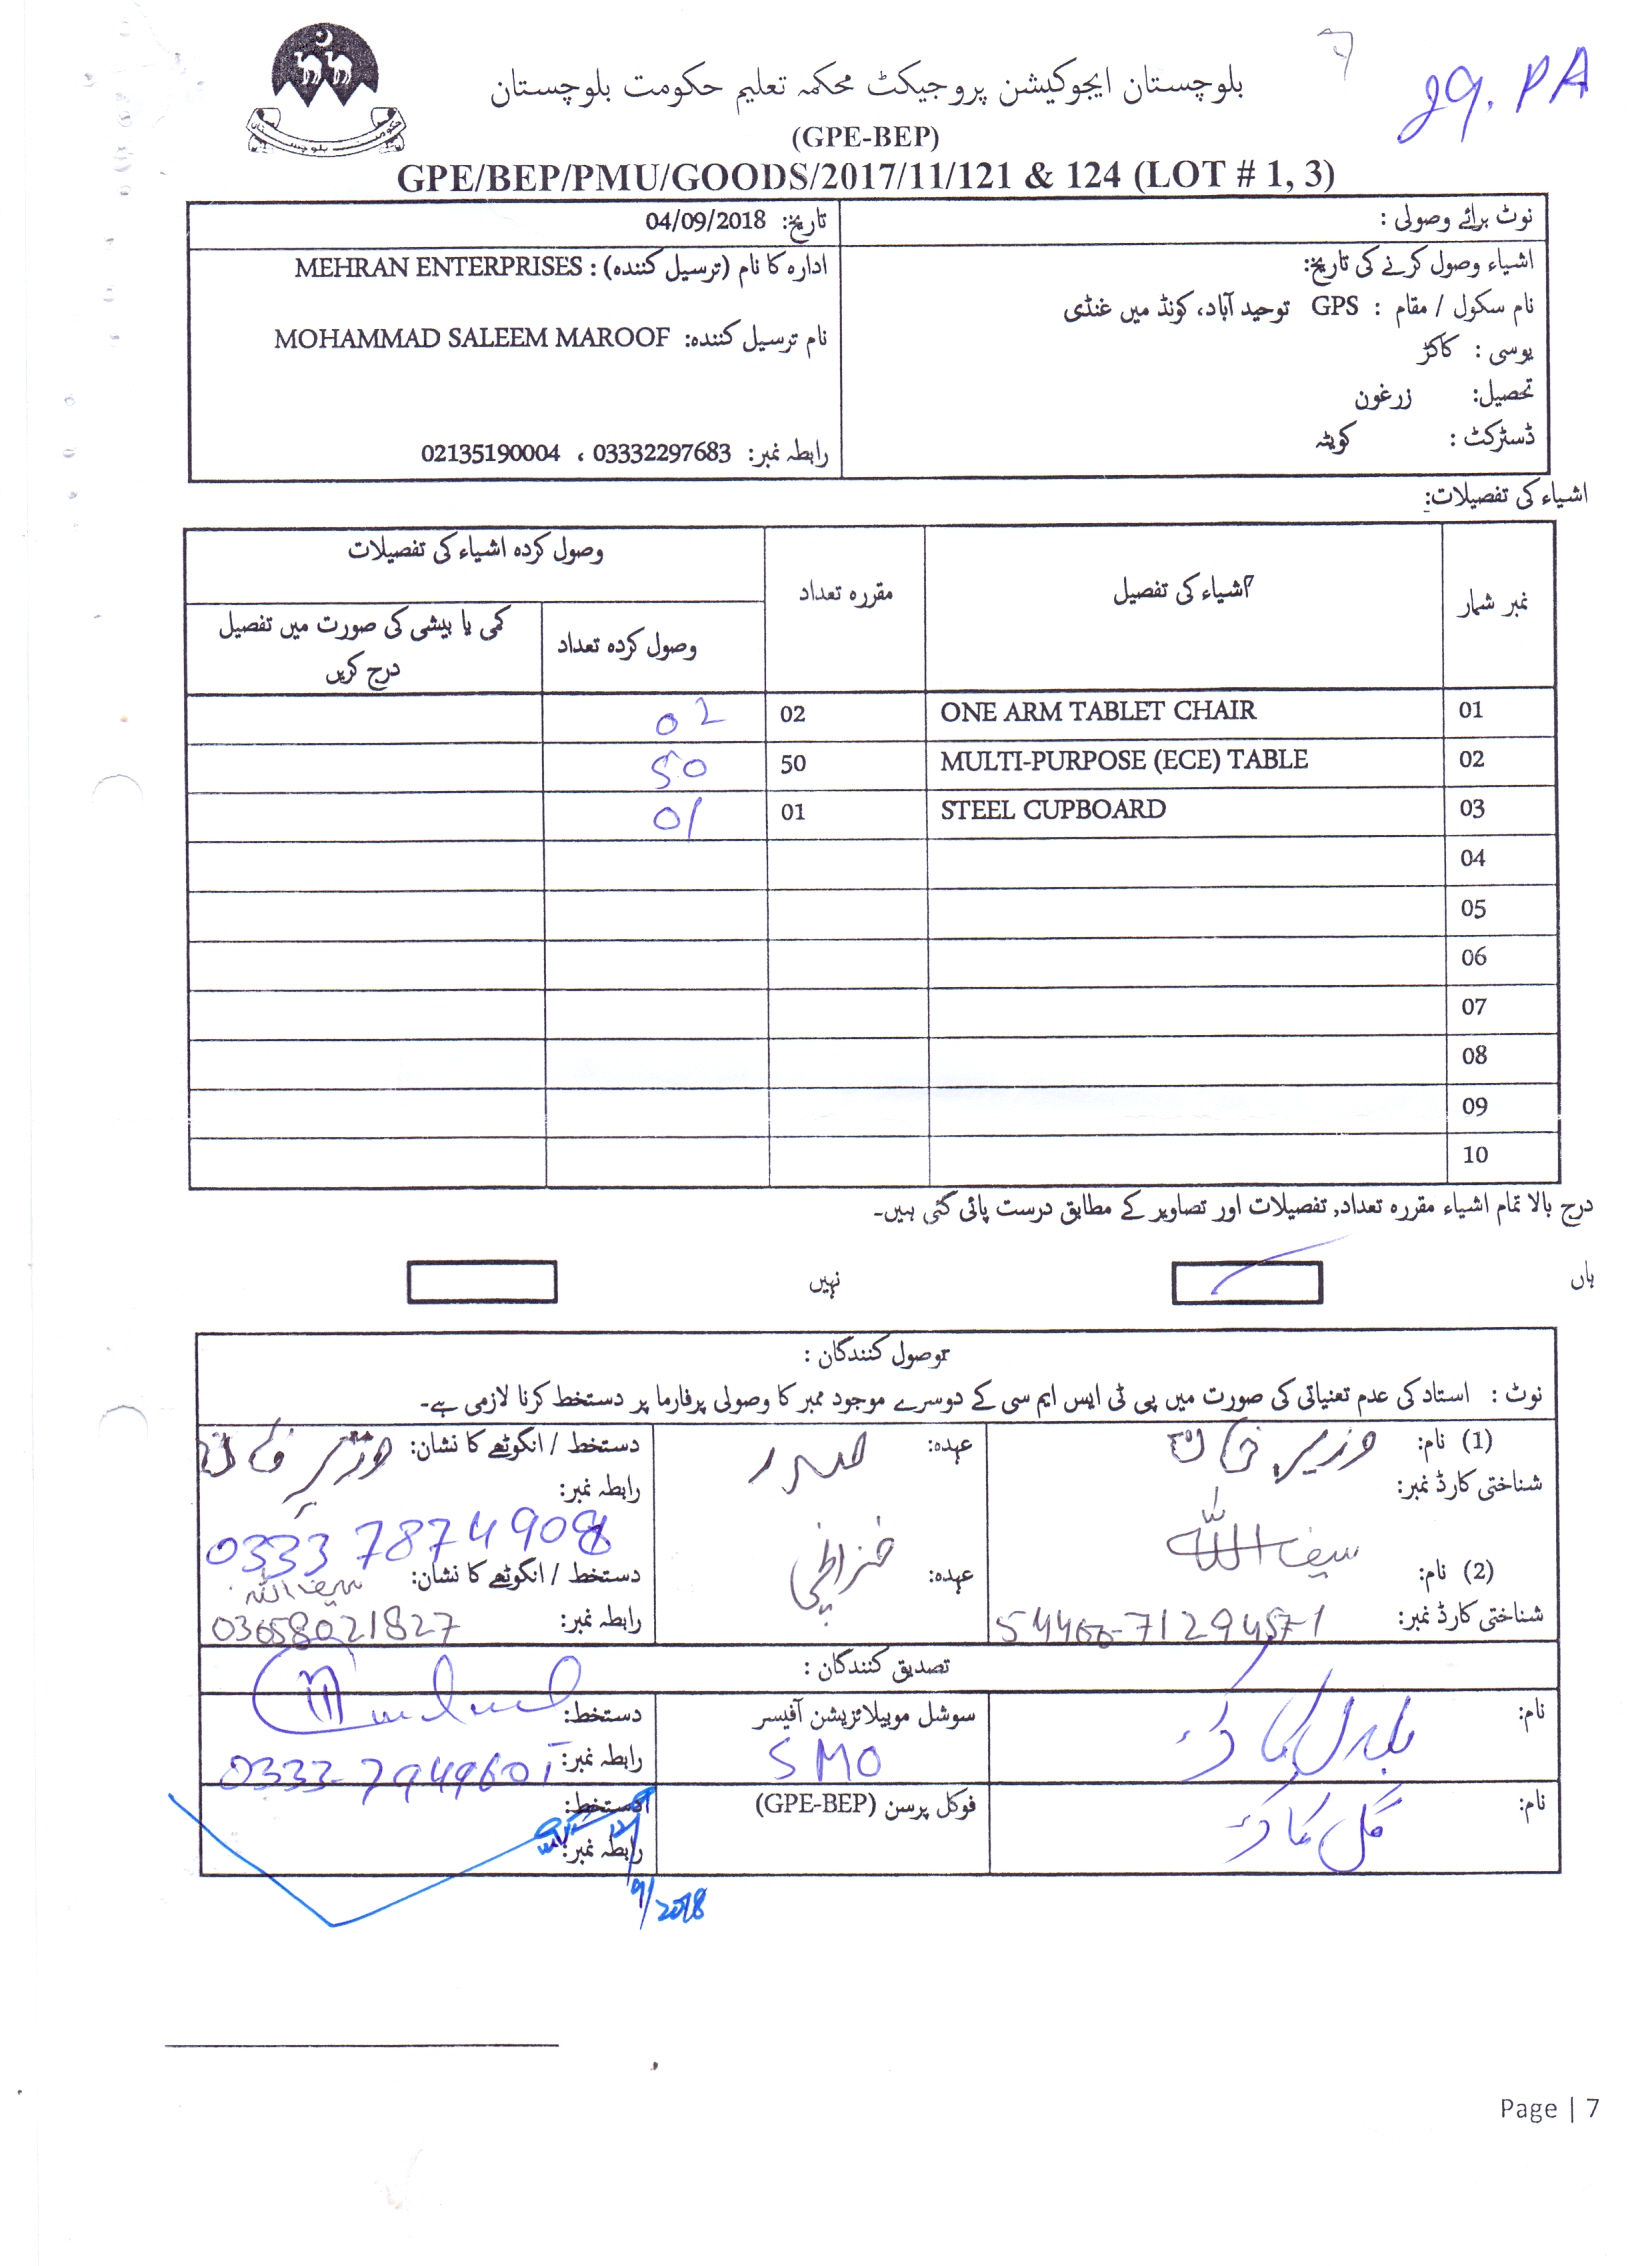 29. PA
بلوچستان ایجوکیشن پروجیکٹ محکمہ تعلیم حکومت بلوچستان
(GPE-BEP)
GPE/BEP/PMU/GOODS/2017/11/121 & 124 (LOT # 1, 3)
نوٹ برائے وصولی :
تاریخ: 04/09/2018
اشیاء وصول کرنے کی تاریخ:
نام سکول / مقام : GPS توحید آباد، کونڈ میں غنڈی
یوسی : کاکڑ
تحصیل: زرغون
ڈسٹرکٹ : کویٹہ
ادارہ کا نام (ترسیل کنندہ) : MEHRAN ENTERPRISES
نام ترسیل کنندہ: MOHAMMAD SALEEM MAROOF
رابطہ نمبر: 03332297683 ، 02135190004
اشیاء کی تفصیلات:
نمبر شمار اشیاء کی تفصیل مقررہ تعداد وصول کردہ اشیاء کی تفصیلات
وصول کردہ تعداد کمی یا بیشی کی صورت میں تفصیل درج کریں
01 ONE ARM TABLET CHAIR 02 02
02 MULTI-PURPOSE (ECE) TABLE 50 50
03 STEEL CUPBOARD 01 01
04
05
06
07
08
09
10
درج بالا تمام اشیاء مقررہ تعداد, تفصیلات اور تصاویر کے مطابق درست پائی گئی ہیں۔
ہاں نہیں
وصول کنندگان :
نوٹ : استاد کی عدم تعنیاتی کی صورت میں پی ٹی ایس ایم سی کے دوسرے موجود ممبر کا وصولی پرفارما پر دستخط کرنا لازمی ہے۔
(1) نام: وزیر خان عہدہ: صدر دستخط / انگوٹھے کا نشان: وزیر خان
شناختی کارڈ نمبر: رابطہ نمبر:
(2) نام: سیف اللہ عہدہ: خزانچی دستخط / انگوٹھے کا نشان: سیف اللہ
شناختی کارڈ نمبر: رابطہ نمبر:
تصدیق کنندگان :
نام: سوشل موبیلائزیشن آفیسر دستخط:
SMO رابطہ نمبر: 0333-7949601
نام: فوکل پرسن (GPE-BEP) دستخط:
رابطہ نمبر:
12/9/2018
Page | 7